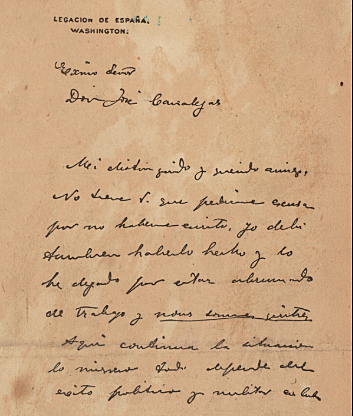 LEGACION DE ESPAÑA.
WASHINGTON.
Exmo Señor
Don José Canalejas
Mi distinguido y querido amigo,
No tiene V. que pedirme excusa
por no haberme escrito, yo debí
tambien haberlo hecho y lo
he dejado por estar abrumado
de trabajo y
Aquí continua la situacion
lo mismo todo depende del
exito politico y militar en Cuba